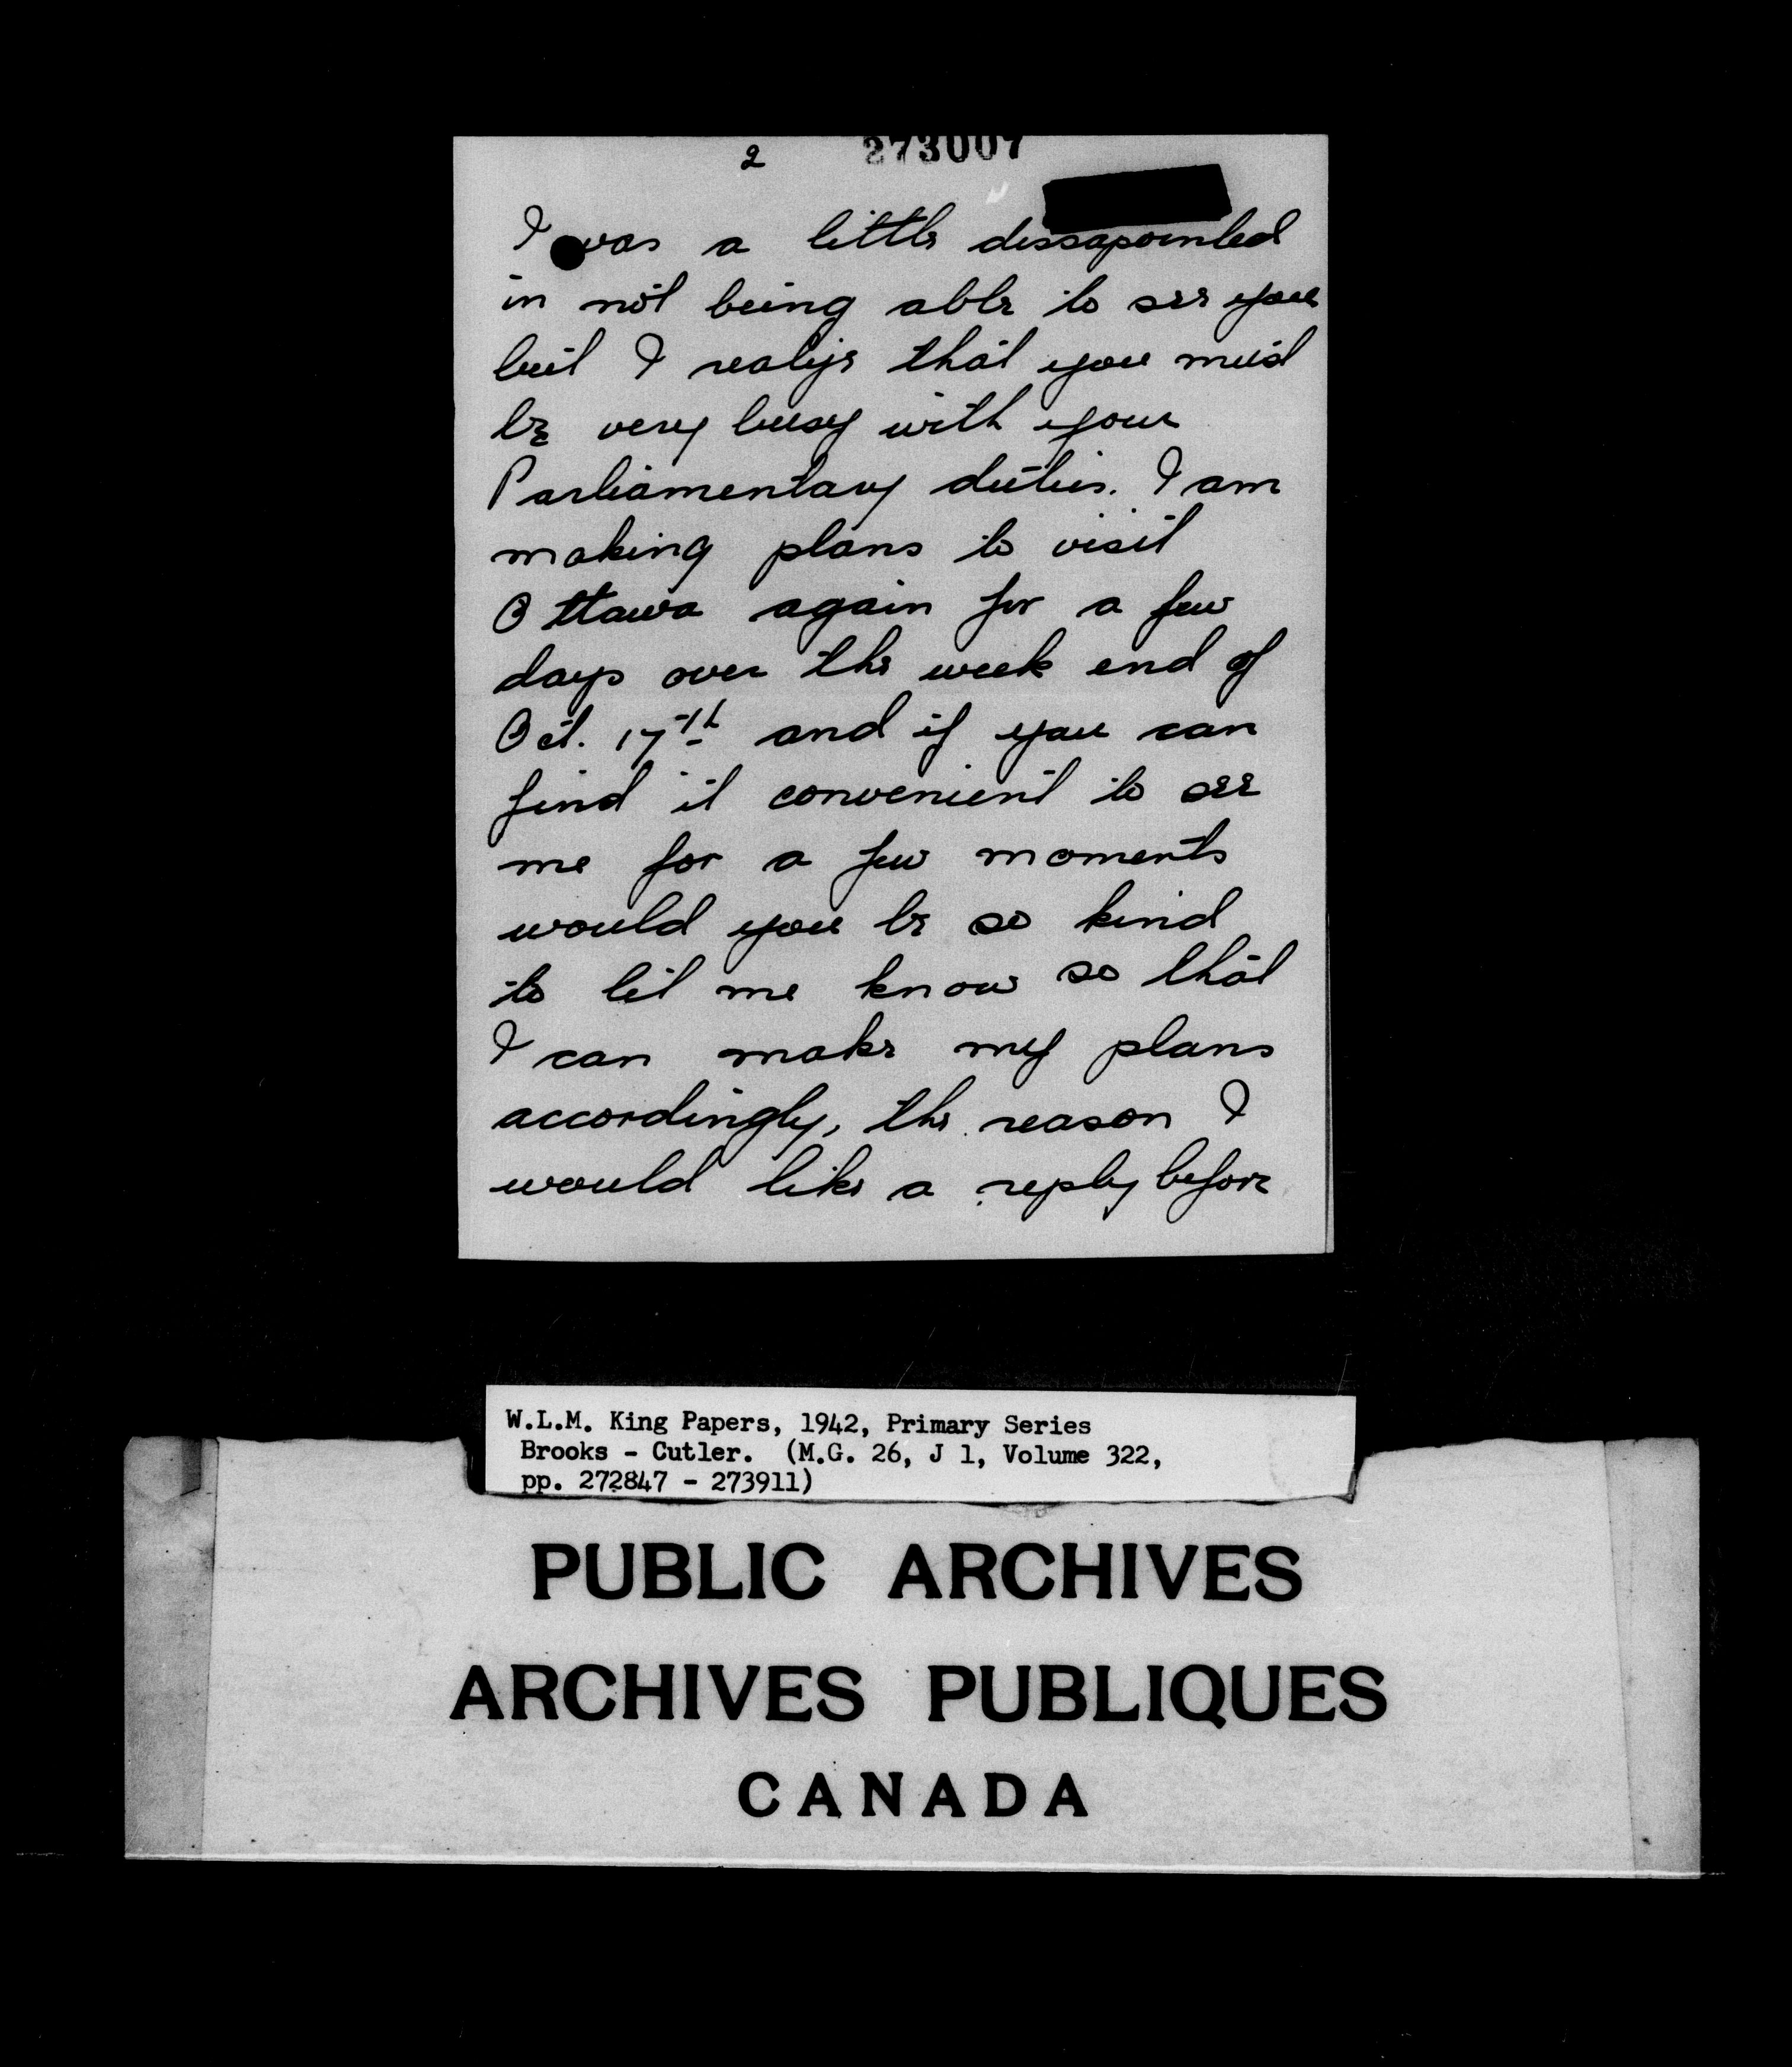 2 273007
I was a little dissapointed
in not being able to see you
but I realize that you must
be very busy with your
Parliamentary duties. I am
making plans to visit
Ottawa again for a few
days over the week end of
Oct. 17th and if you can
find it convenient to see
me for a few moments
would you be so kind
to let me know so that
I can make my plans
accordingly, the reason I
would like a reply before
W.L.M. King Papers, 1942, Primary Series
Brooks - Cutler. (M.G. 26, J 1, Volume 322,
pp. 272847 - 273911)
PUBLIC ARCHIVES
ARCHIVES PUBLIQUES
CANADA